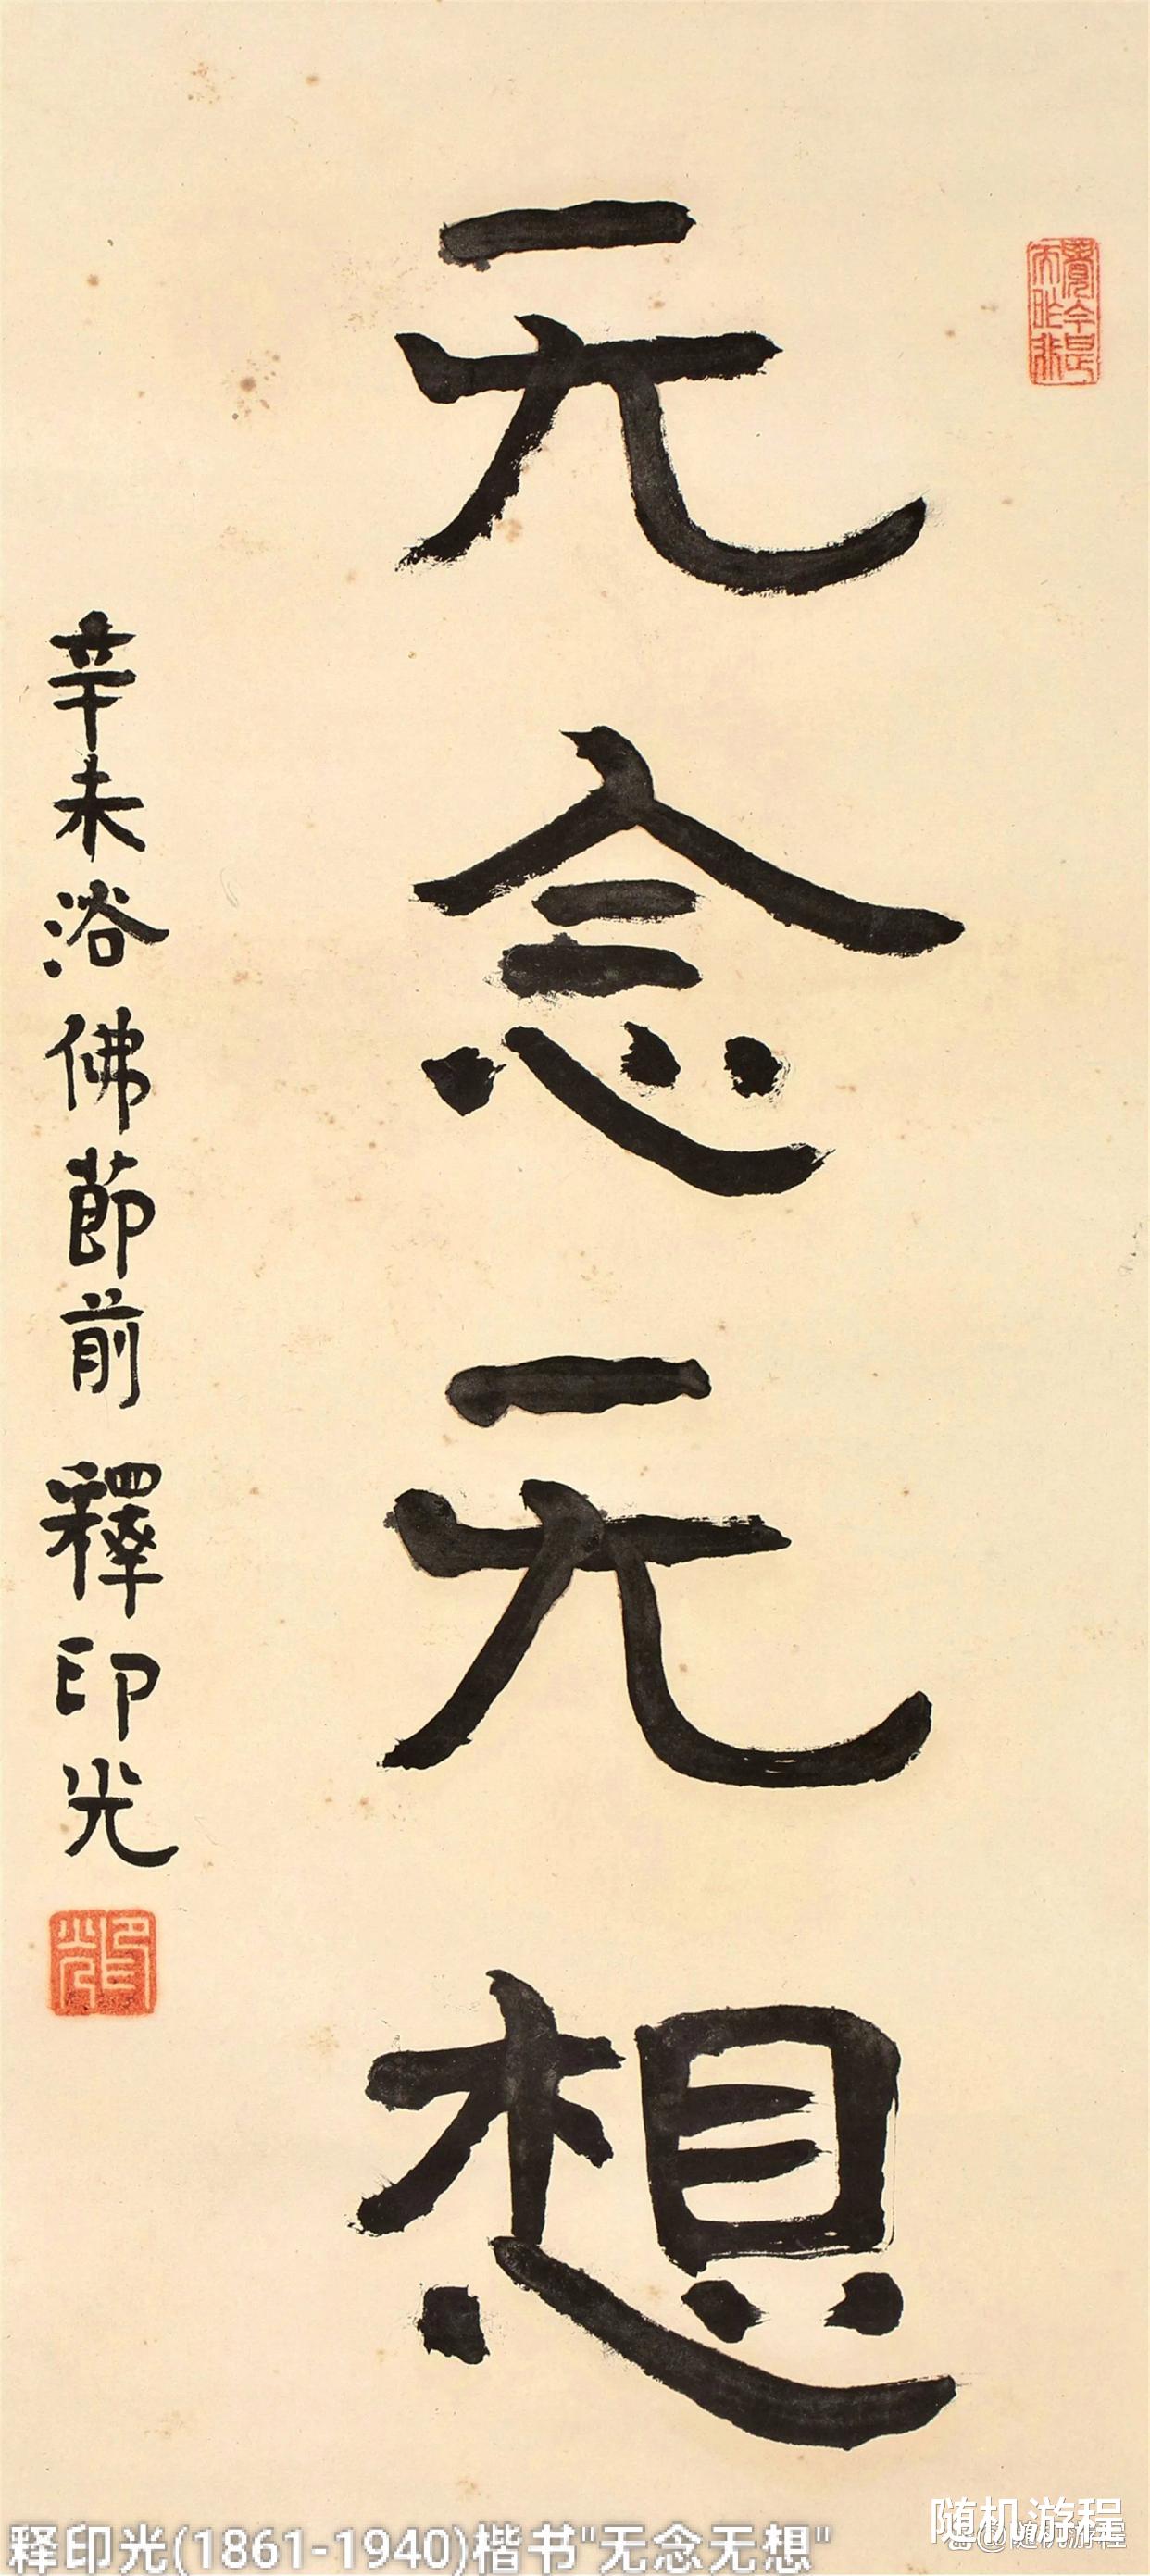 无念无想
辛未浴佛節前 釋印光
覺今是而昨非
印光
释印光(1861-1940)楷书"无念无想"
随机游程
@随机游程